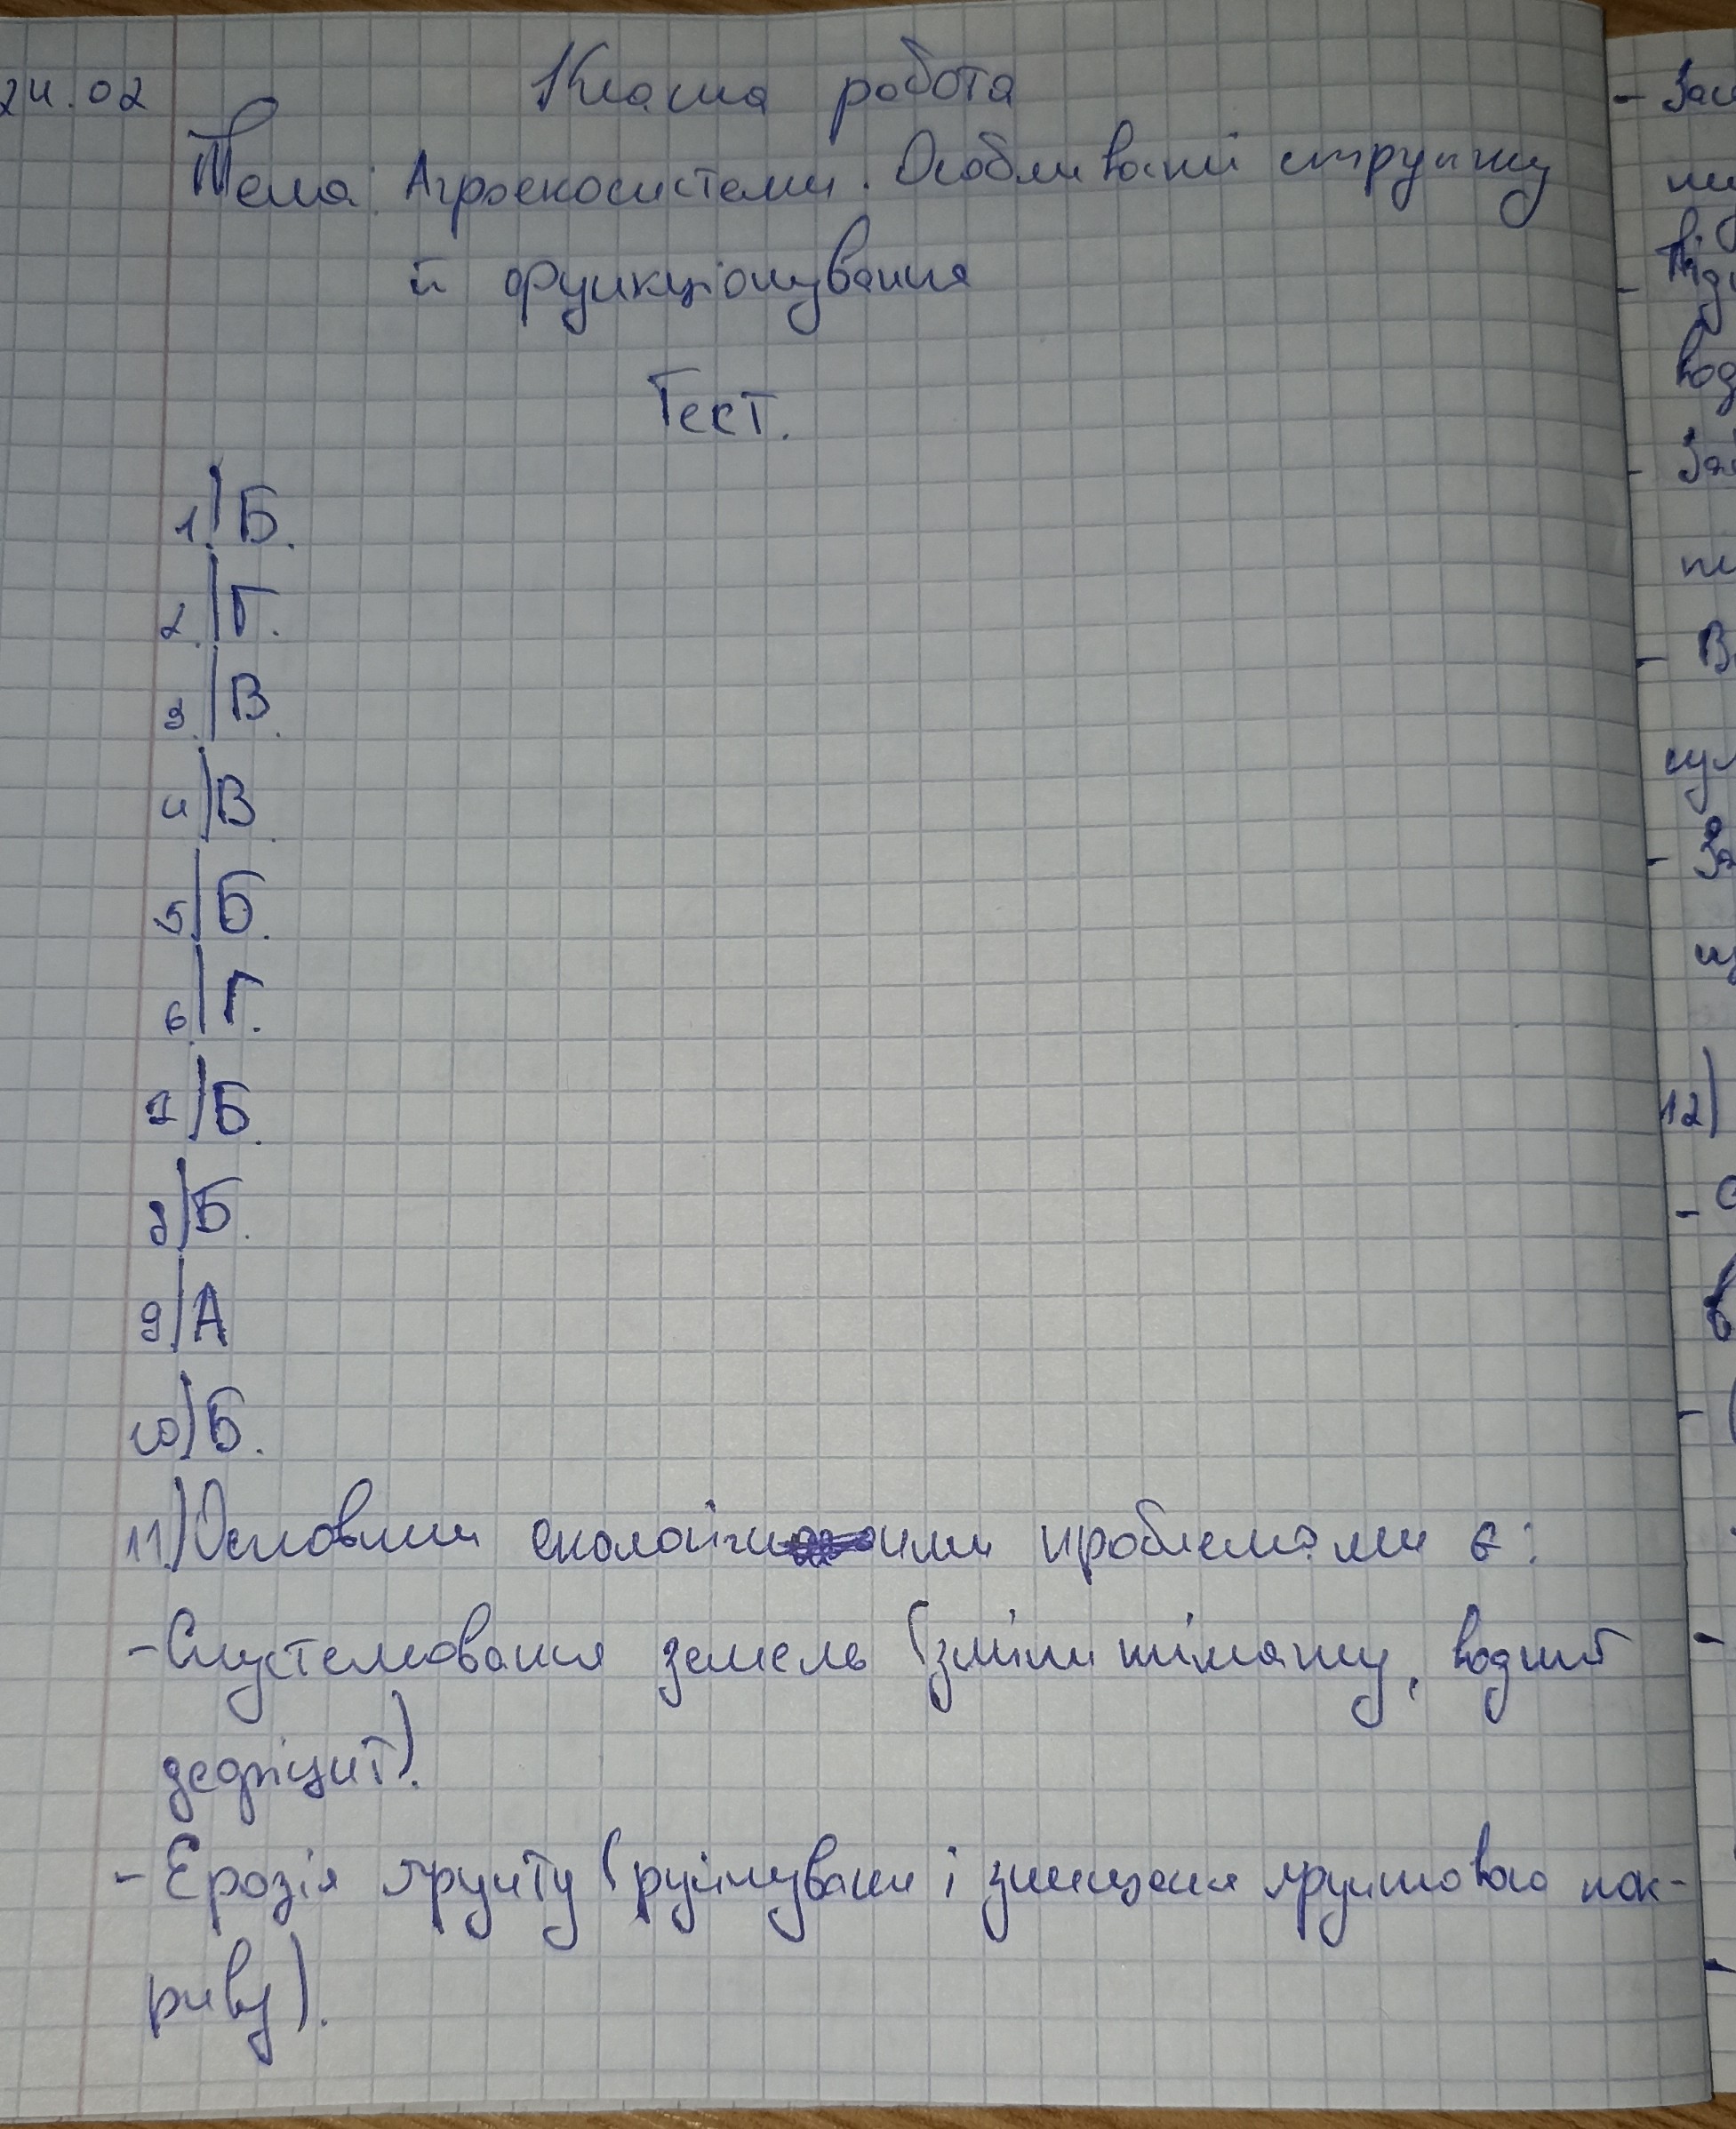 24.02
Класна робота
Тема: Агроекосистеми. Особливості структури
й функціонування
Тест.
1.) Б.
2.) Г.
3.) В.
4) В.
5) Б.
6) Г.
7) Б.
8) Б.
9) А
10) Б.
11) Основними екологічними проблемами є:
- Спустелювання земель (зміни клімату, водний
дефіцит).
- Ерозія ґрунту (руйнування і знищення ґрунтового пок-
риву).
12)